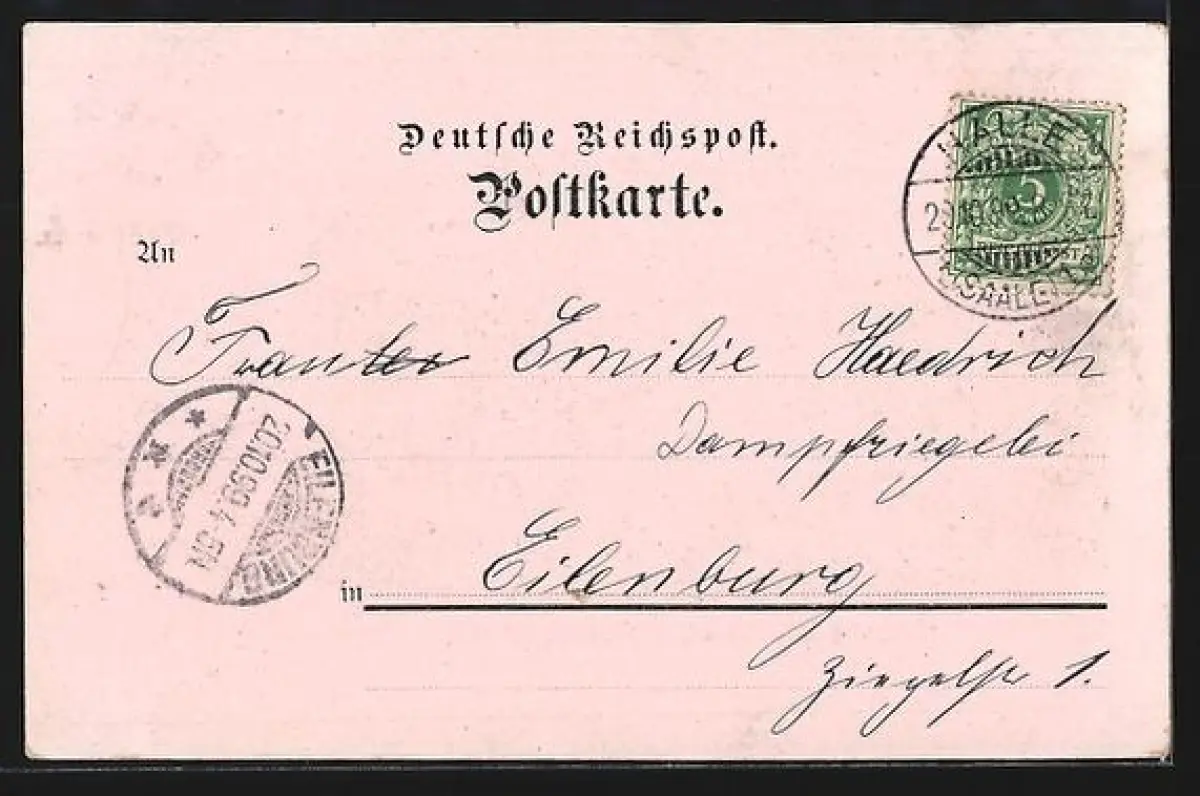 Deutsche Reichspost.
Postkarte.
HALLE
5
(SAALE)
An
Emilie Haedrich
Dampfziegelei
EILENBURG
20.10.99. 4-5N.
in Eilenburg
Ziegelstr 1.